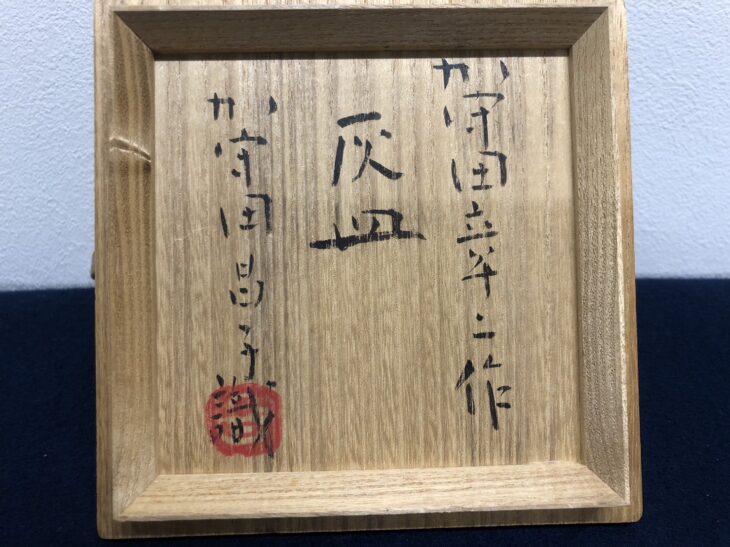 加守田章二作
灰皿
加守田昌子識